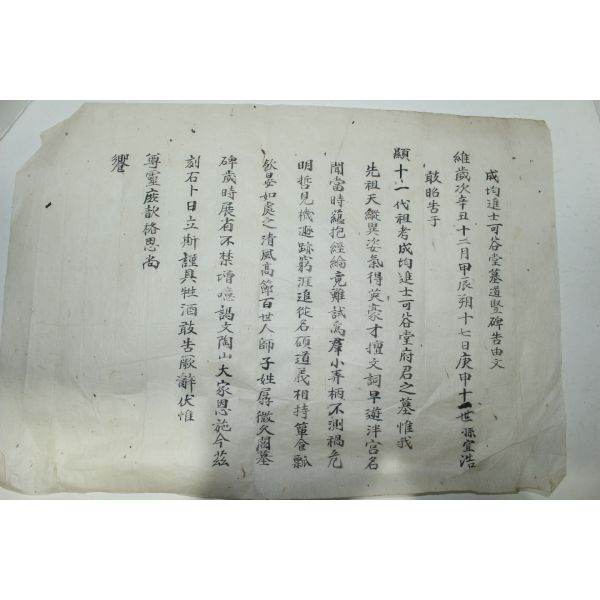 成均進士可谷堂墓道竪碑告由文
維歲次辛丑十二月甲辰朔十七日庚申十一世孫宜浩
敢昭告于
顯十一代祖考成均進士可谷堂府君之墓惟我
先祖天縱異姿氣得英豪才擅文詞早遊泮宮名
聞當時蘊抱經綸竟難試爲羣小弄柄不測禍危
明哲見機遯跡窮涯追從名碩道義相持簞食瓢
飮晏如處之淸風高節百世人師子姓孱微久闕墓
碑歲時展省不禁增噫謁文陶山大家恩施今玆
刻石卜日立斯謹具牲酒敢告厥辭伏惟
尊靈庶歆格思尙
饗